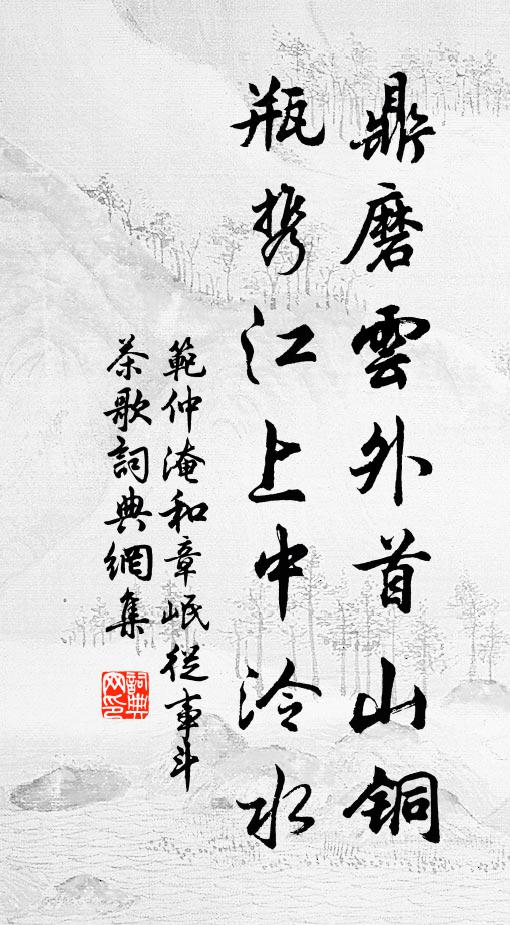 鼎磨雲外首山铜
瓶携江上中泠水
範仲淹和章岷従事斗
茶歌詞典網集
詞典
网印